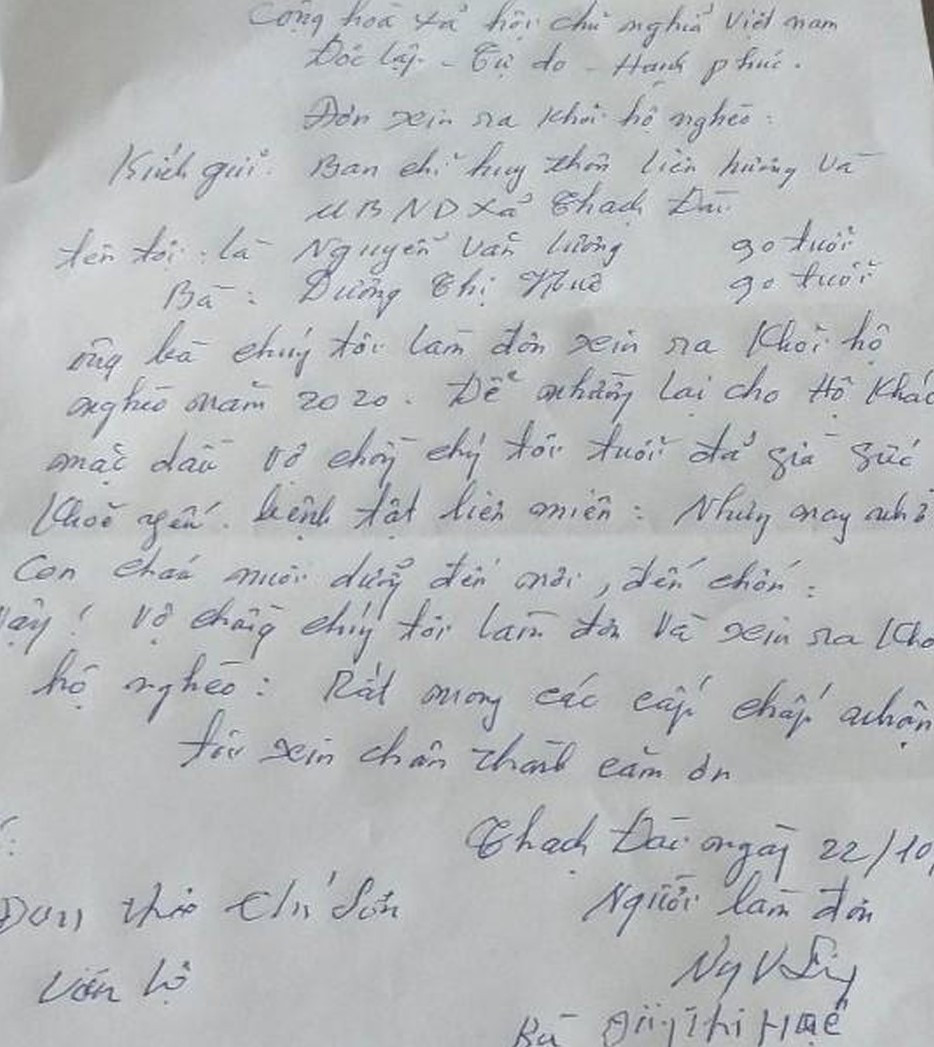 Cộng hoà xã hội chủ nghĩa Việt nam
Độc lập - Tự do - Hạnh phúc.
Đơn xin ra khỏi hộ nghèo:
Kính gửi: Ban chỉ huy thôn liên hương và
UBND xã Thạch Đài
tên tôi là Nguyễn Văn lương 90 tuổi
Bà: Dương Thị 90 tuổi
ông bà chúng tôi làm đơn xin ra khỏi hộ
nghèo năm 2020. Để nhường lại cho Hộ khác
mặc dầu vợ chồng chúng tôi tuổi đã già sức
khoẻ yếu. bệnh tật liên miên: Nhưng may nhờ
Con cháu nuôi dưỡng đến nơi, đến chốn:
vậy! Vợ chồng chúng tôi làm đơn và xin ra khỏ
hộ nghèo: Rất mong các cấp chấp nhận
tôi xin chân thành cảm ơn
Thạch Đài ngày 22/10/
Người làm đơn